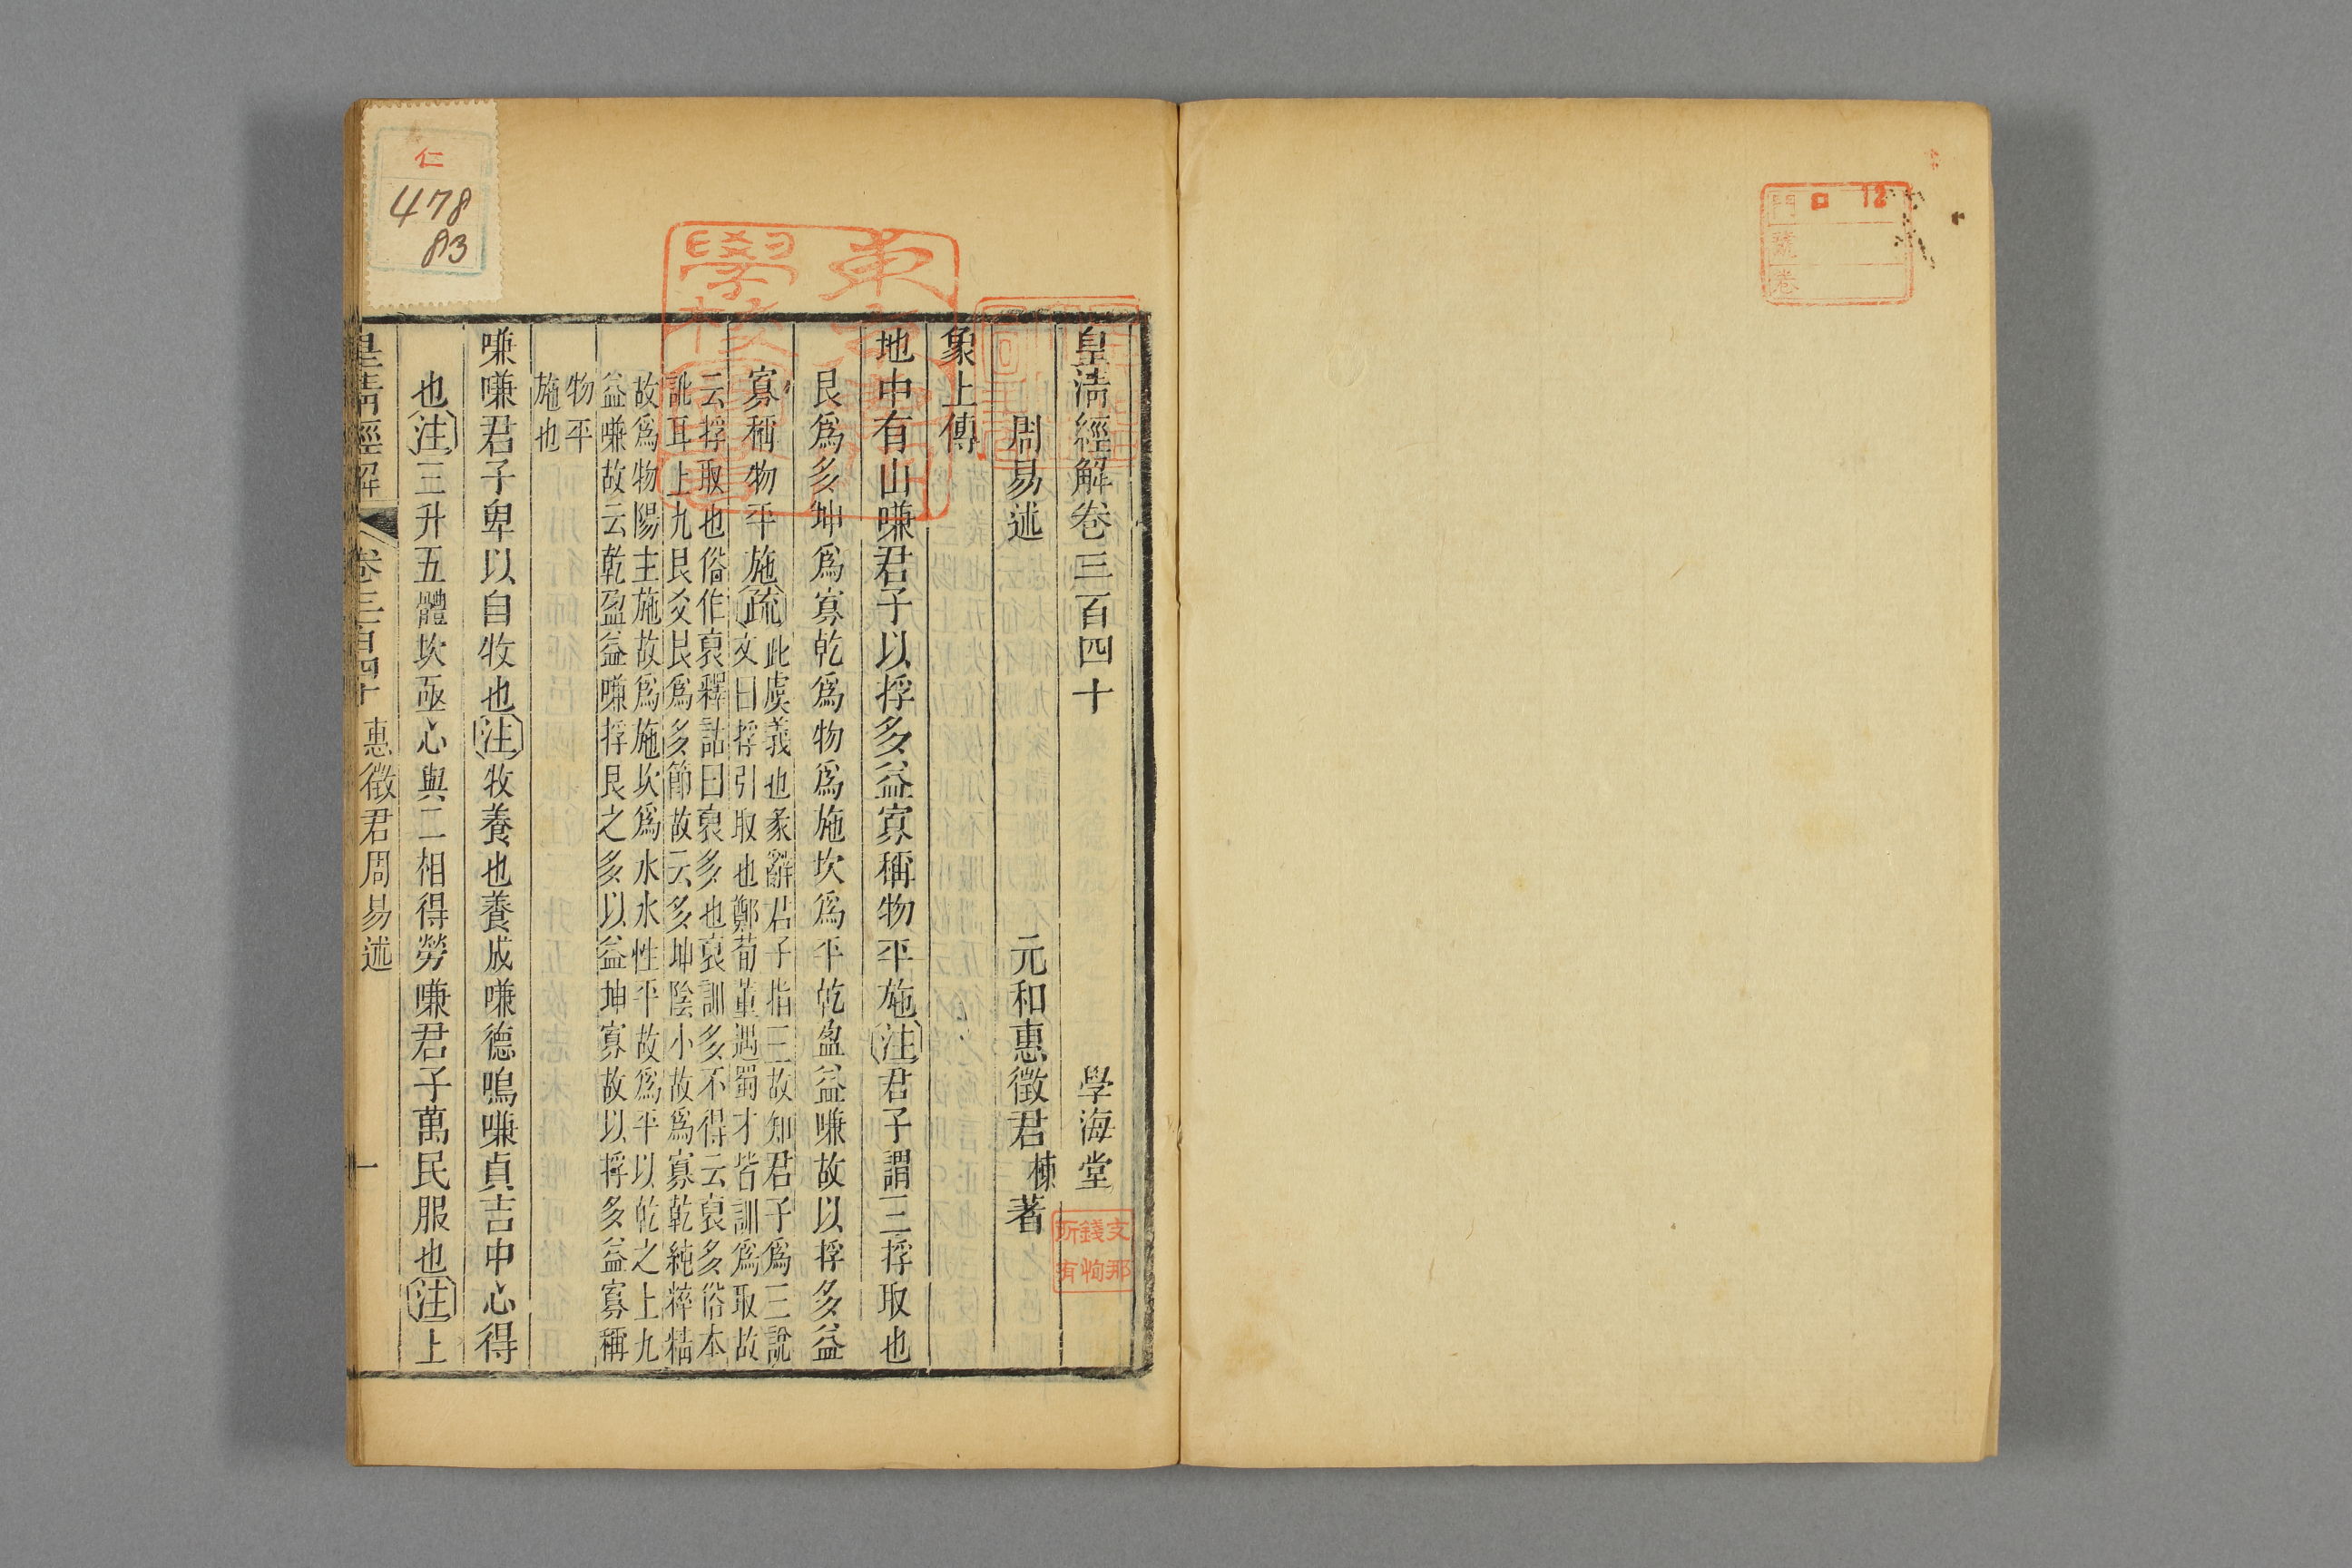 皇清經解卷三百四十
學海堂
周易述
元和惠徵君棟著
象上傳
地中有山嗛君子以捊多益寡稱物平施注君子謂三捊取也
艮爲多坤爲寡乾爲物爲施坎爲平乾盈益嗛故以捊多益
寡稱物平施疏
此虞義也彖辭君子指三故知君子爲三說
文曰捊引取也鄭荀董遇蜀才皆訓爲取故
云捊取也俗作裒釋詁曰裒多也裒訓多不得云裒多俗本
訛耳上九艮爻艮爲多節故云多坤陰小故爲寡乾純粹精
故爲物陽主施故爲施坎爲水水性平故爲平以乾之上九
益嗛故云乾盈益嗛捊艮之多以益坤寡故以捊多益寡稱
物平
施也
嗛嗛君子卑以自牧也注牧養也養成嗛德鳴嗛貞吉中心得
也注三升五體坎亟心與二相得勞嗛君子萬民服也注上
皇清經解 卷三百四十 惠徵君周易述 一
仁
478
83
門 口 12
號
卷
文那
錢恂
所有